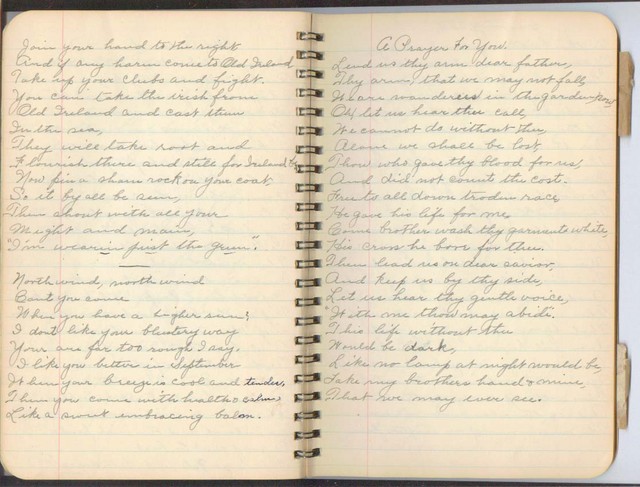 Join your hand to the right
And if any harm comes to Old Ireland
Take up your clubs and fight.
You can take the irish from
Old Ireland and cast them
In the sea,
They will take root and
Flourish there and still for Ireland be
Now pin a sham rock on your coat,
So it by all be seen,
Then shout with all your
Might and main,
"I'm wearin just the green".
North wind, north wind
Cant you come
When you have a
I dont like your blustery way
Your are far too rough I say.
I like you better in September
When your breeze is cool and tender,
Then you come with health & calm
Like a sweet embracing balm.
A Prayer For You.
Lend us thy arm dear father,
Thy arm, that we may not fall,
We are wanderers in the garden now
Oh let us hear thee call,
We cannot do without thee,
Alone we shall be lost,
Thou who gave thy blood for us,
And did not count the cost.
Free to all down troden race
He gave his life for me,
Come brother wash thy garments white,
His cross he bore for thee.
Then lead us on dear savior,
And keep us by thy side,
Let us hear thy gentle voice,
With me thow may abide.
This life without thee
Would be dark,
Like no lamp at night would be,
Take my brothers hand & mine,
That we may ever see.